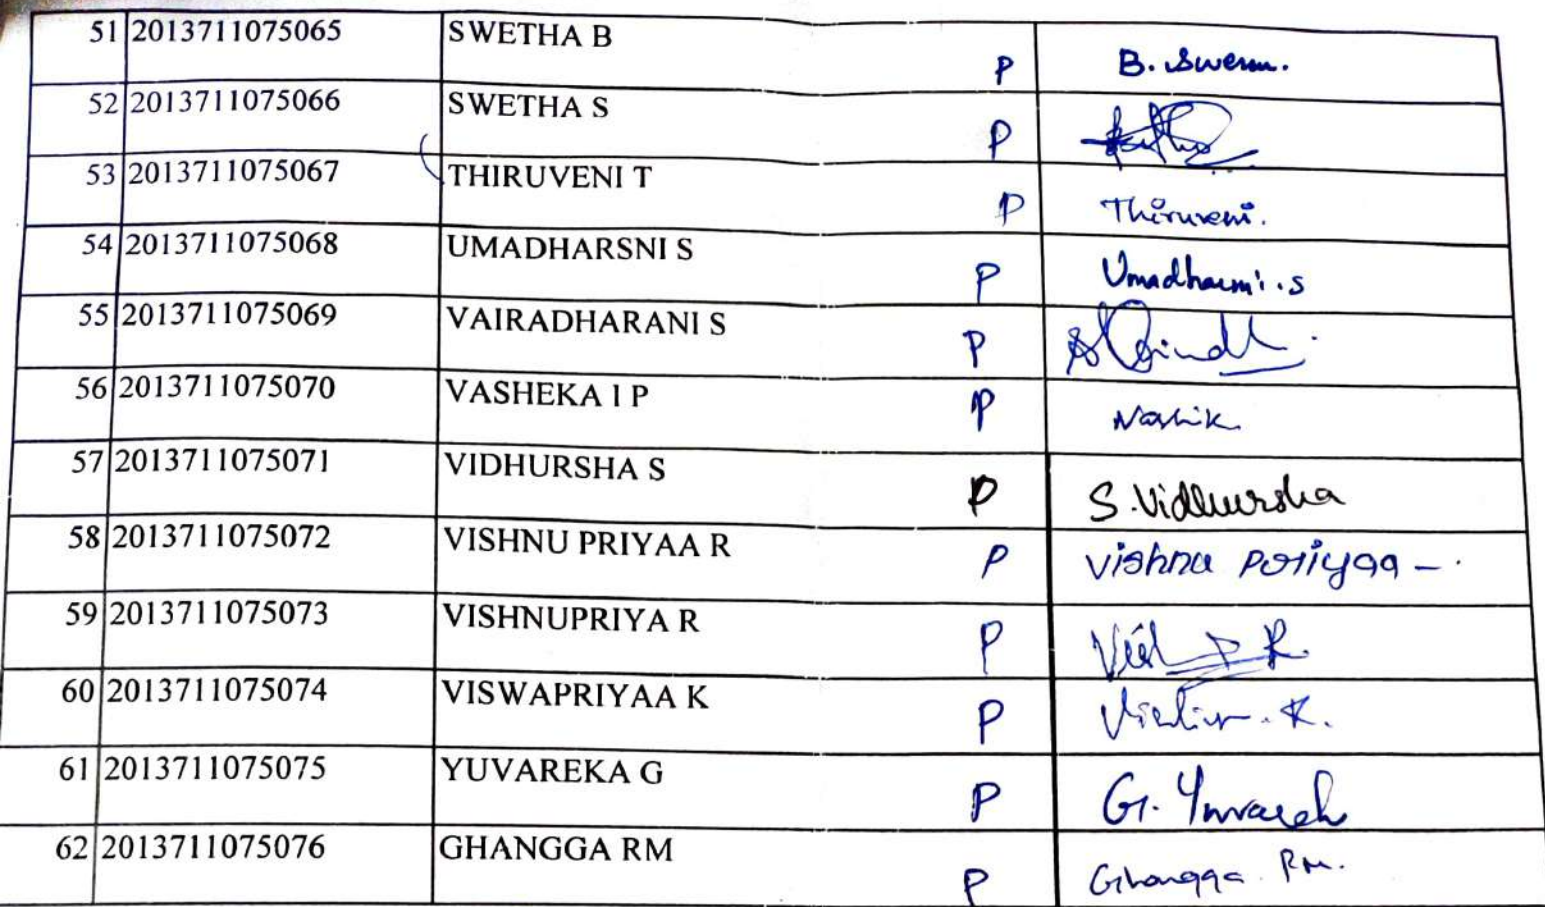 51 2013711075065 SWETHA B P B. Swem.
52 2013711075066 SWETHA S P
53 2013711075067 THIRUVENI T P Thiruveni.
54 2013711075068 UMADHARSNI S P Umadharsni .S
55 2013711075069 VAIRADHARANI S P
56 2013711075070 VASHEKA I P P
57 2013711075071 VIDHURSHA S P S. Vidhursha
58 2013711075072 VISHNU PRIYAA R P Vishnu Priyaa -.
59 2013711075073 VISHNUPRIYA R P
60 2013711075074 VISWAPRIYAA K P K.
61 2013711075075 YUVAREKA G P G. Yuvarek
62 2013711075076 GHANGGA RM P Ghangga RM.